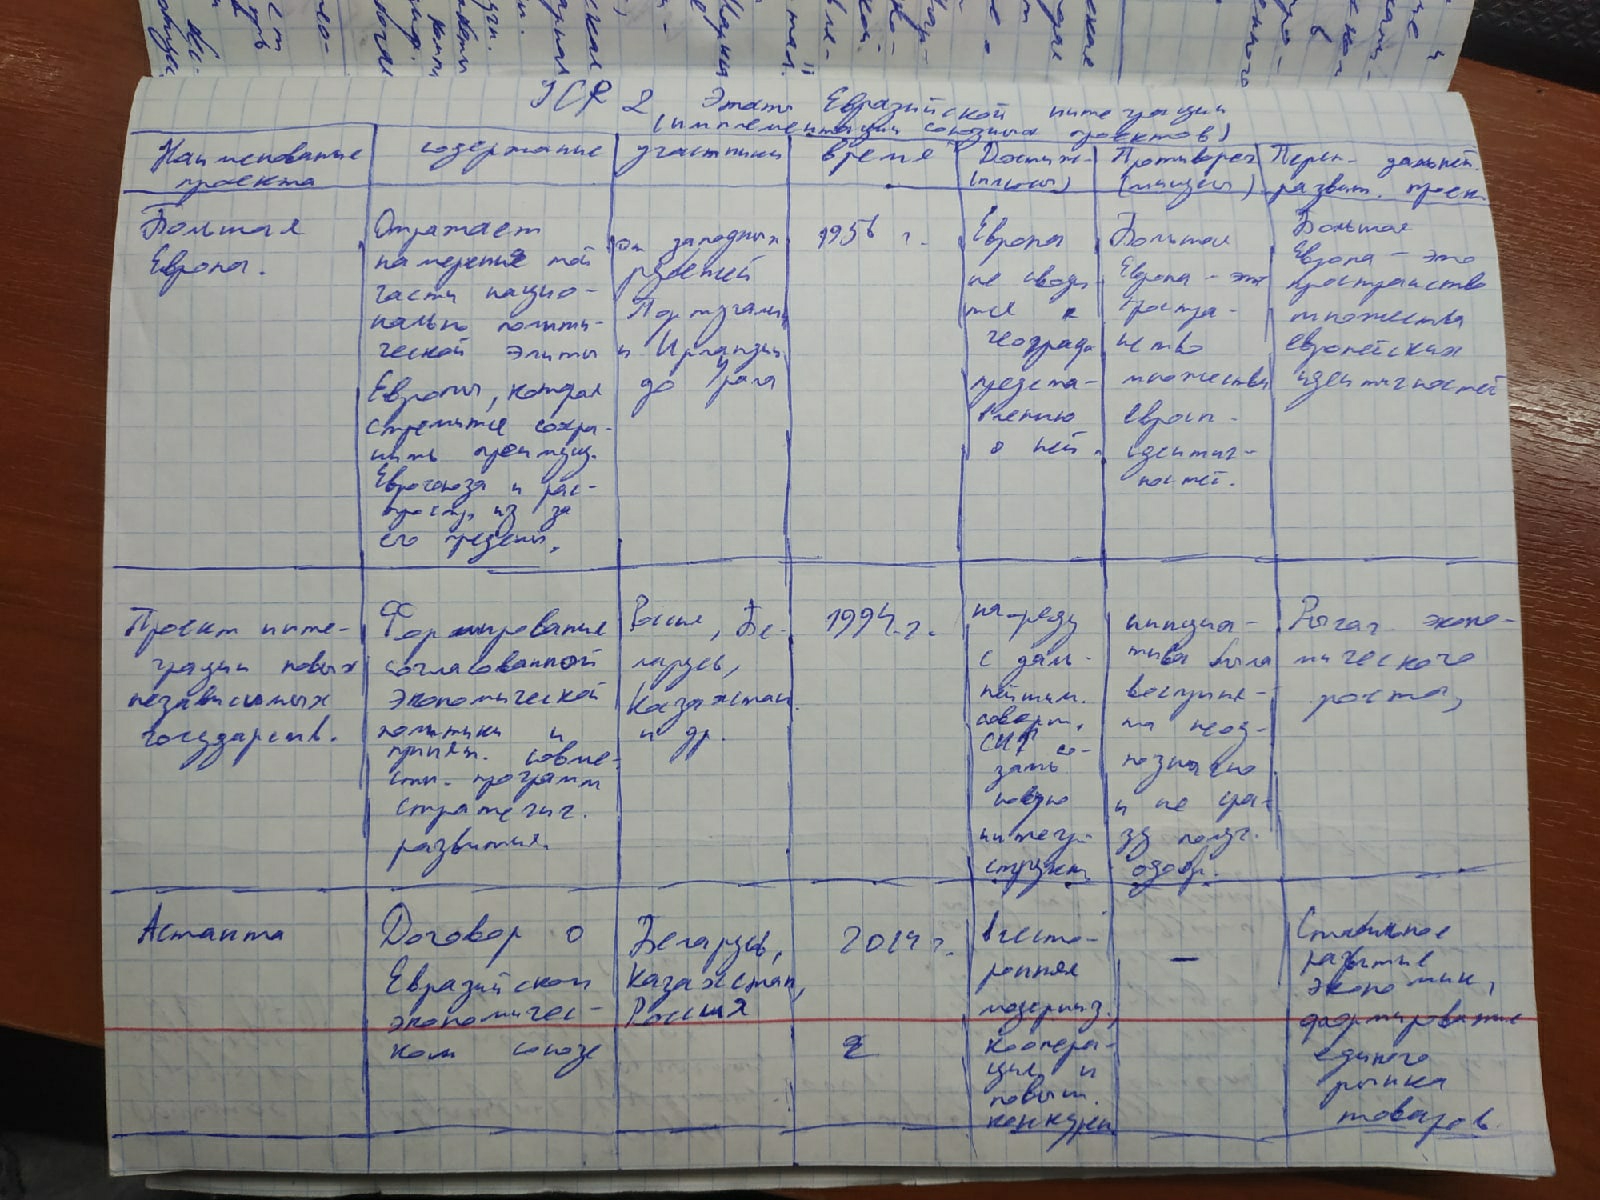 УСР 2 Этапы Евразийской интеграции
(имплементации союзных проектов)
Наименование
проекта
содержание
участники
время
Достиж.
(плюсы)
Противореч
(минусы)
Персп. дальней.
развит. проек.
Большая
Европа.
Отражает
намерение той
части нацио-
нально полити-
ческой элиты
Европы, которая
стремится сохра-
нить преимущ.
Евросоюза и рас-
простр. из за
его пределы.
от западных
рубежей
Португалии
и Ирландии
до Урала
1956 г.
Европа
не своди-
тся к
географ
предста-
влению
о ней.
Большая
Европа - это
простра-
нство
множества
европ-
идентич-
ностей.
Большая
Европа - это
пространство
множества
европейских
идентичностей
Проект инте-
грации новых
независимых
государств.
Формирование
согласованной
экономической
политики и
принят. совме-
стн. программ
стратегич.
развития.
Россия, Бе-
ларусь,
Казахстан
и др.
1994 г.
на-ряду
с даль-
нейшим.
соверш.
СНГ со-
здать
новую
интегр.
структ.
инициа-
тива была
восприня-
та неод-
нозначно
и не сра-
зу получ.
одобр.
Рычаг эконо-
мического
роста,
Астана
Договор о
Евразийском
экономичес-
ком союзе
Беларусь,
Казахстан,
Россия
2014 г.
всесто-
ронняя
модерниз.,
коопера-
ция и
повыш.
конкурен
—
Стабильное
развитие
экономик,
формирование
единого
рынка
товаров.